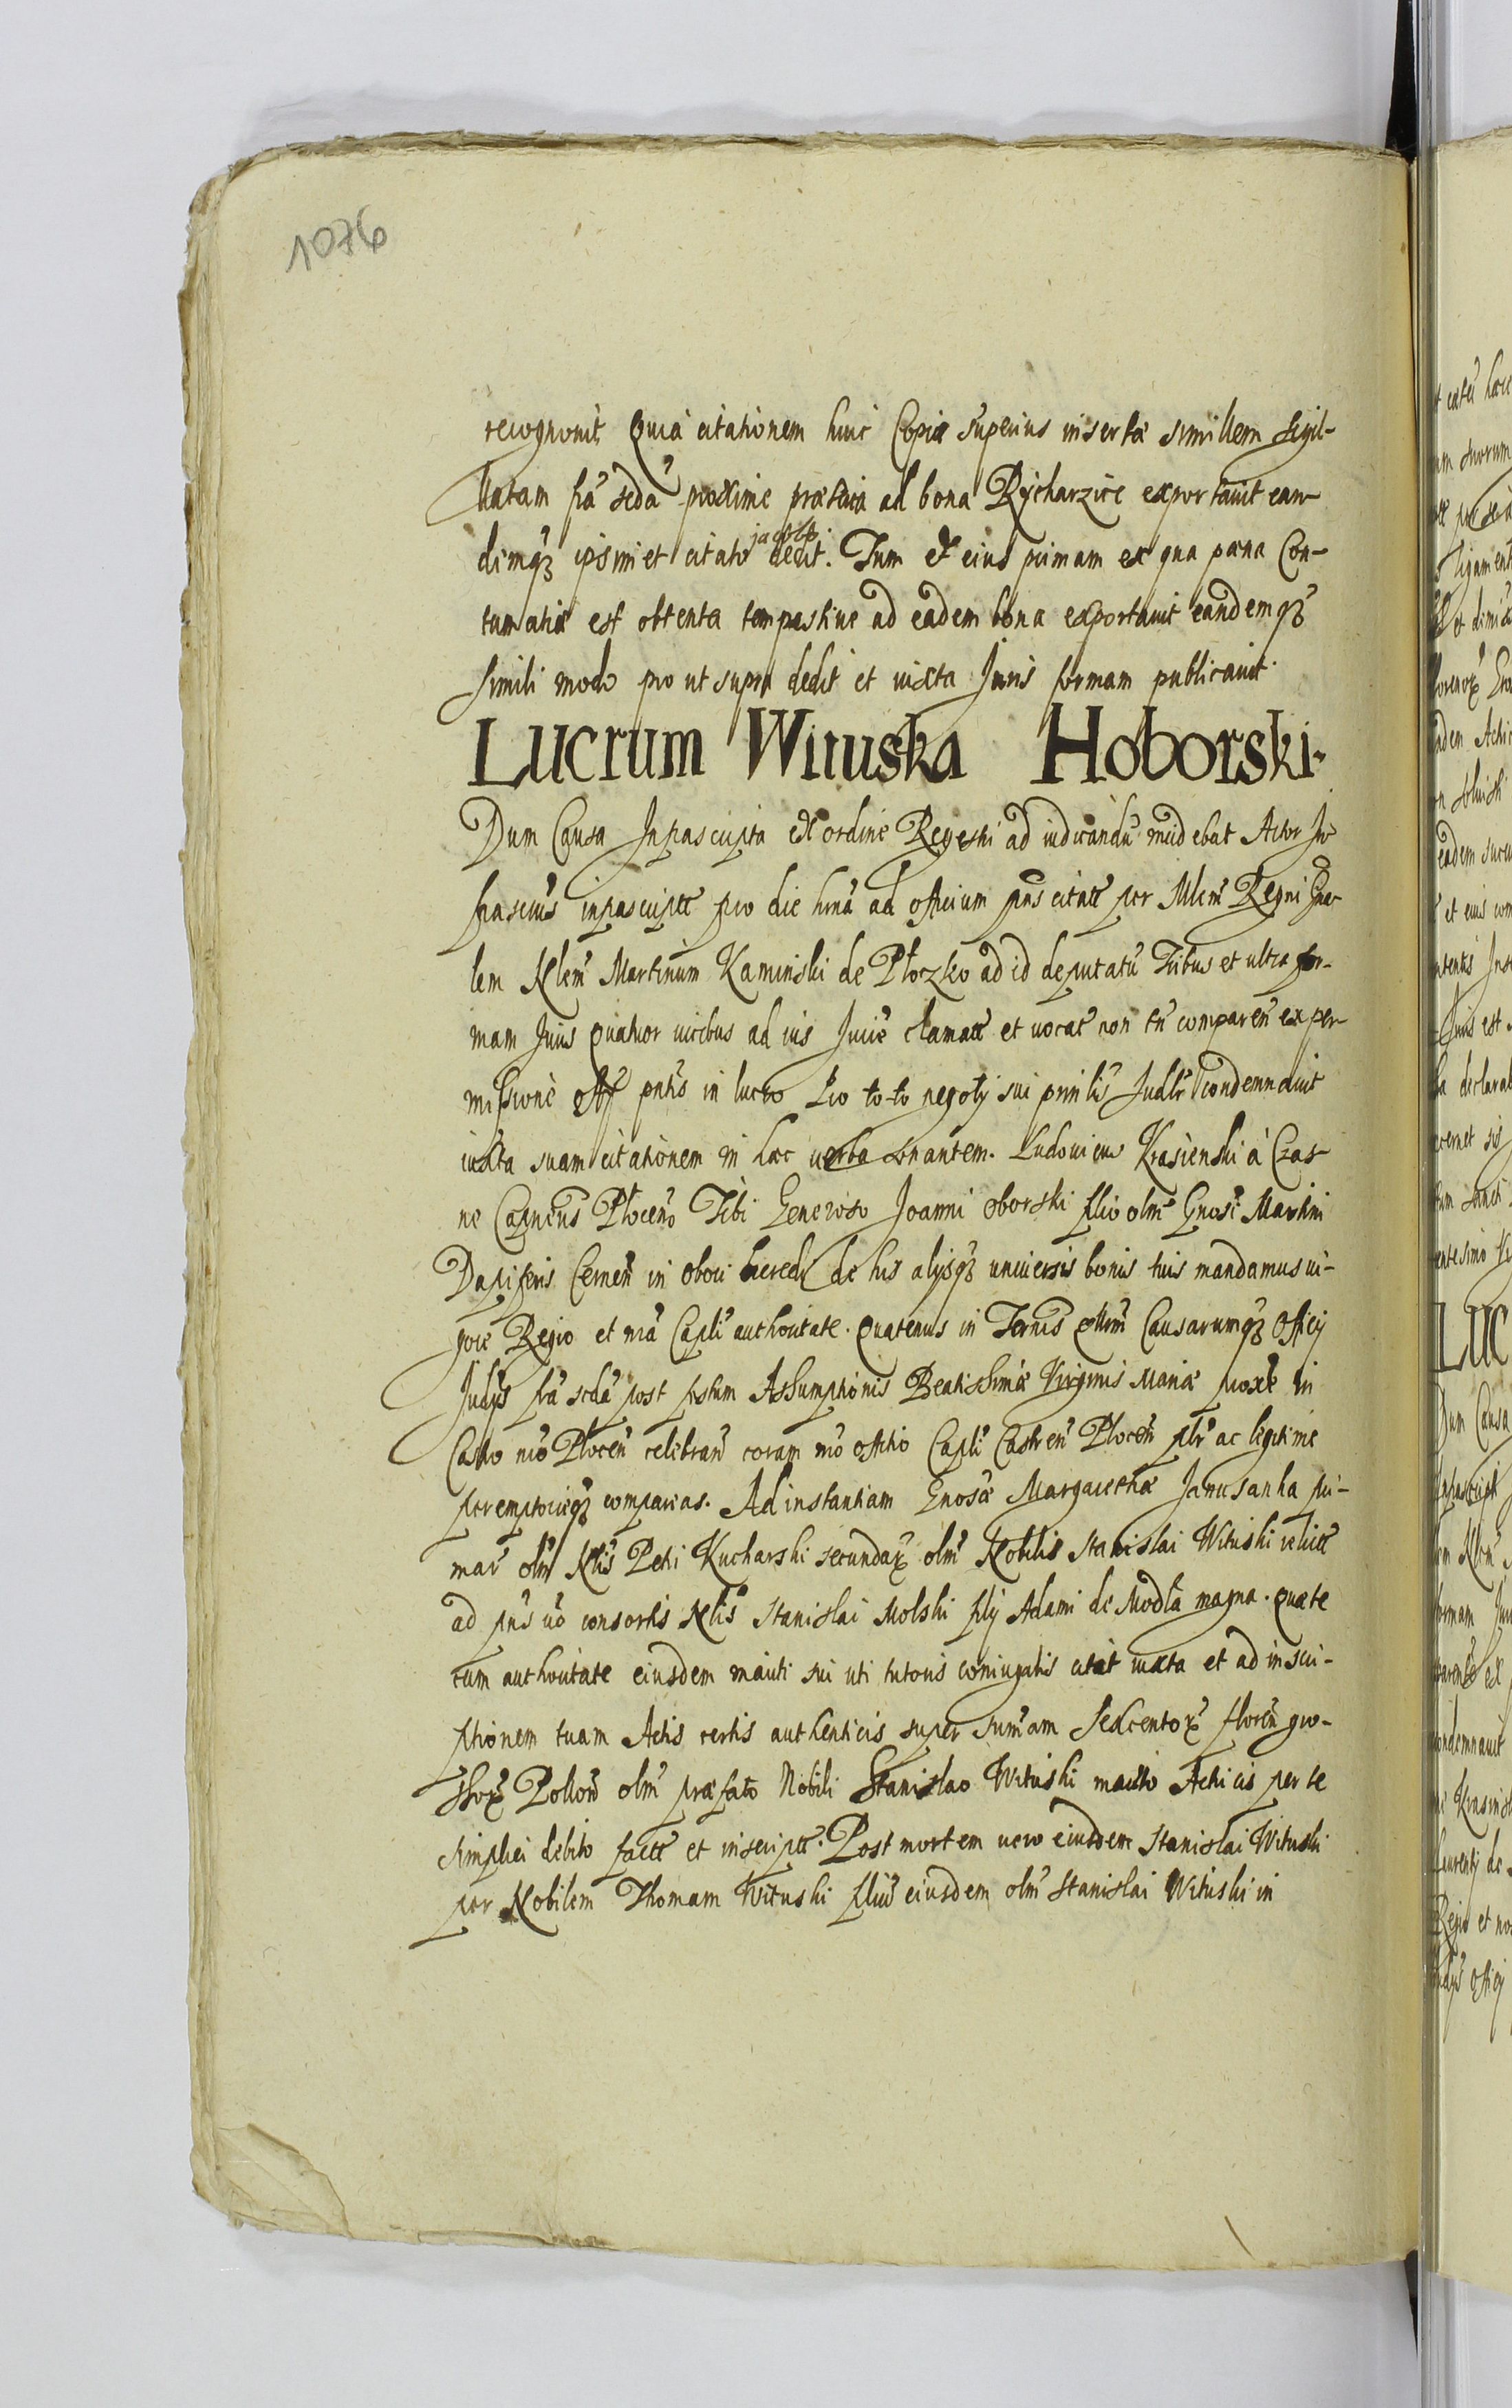 1076
recognouit, Quia citationem huic Copiæ superius insertæ similem sigil-
llatam fa seda proxime præterita ad bona Rycharzice exportauit ean-
demqȝ ipsimet citato dedit. Tum et eius primam ex qua pœna Con-
tumatiæ est obtenta tempestiue ad eadem bona exportauit eandemqȝ
simili modo pro ut supra dedit et iuxta Juris formam publicauit.
Lucrum Wituska Hoborski.
Dum Causa Infrascripta ex ordine Regestri ad iudicandu incidebat Actor In-
frascrus infrascriptt pro die hrna ad officium pns citatt per Mlem Regni Gna-
lem Nlem Martinum Kaminski de Ploczko ad id deputatu Tribus et ultra for-
mam Juris quatuor uicibus ad ius Jurie clamatt et uocat non tn comparen ex per-
missione Off pntis in lucro pro to-to negoty sui prinlis Judlr condemnauit
iuxta suam citationem in hæc uerba sonantem. Ludouicus Krasienski à Cras-
ne Capneus Plocen Tibi Generoso Joanni Oborski filio olm Gnosi Martini
Dapiferis Cernen in Obori hæredi de his alysqȝ uniuersis bonis tuis mandamus ui-
gore Regio et nra Capli authoritate. Quatenus in Ternis Qllrm Causarumqȝ Officy
Judys fa seda post festum Assumptionis Beatissimæ Virginis Mariæ proxe in
Castro nro Plocen celebran coram nro officio Capli Castren Plocen plr ac legitime
peremptorieqȝ compareas. Ad instantiam Gnosæ Margarethæ Janusanka pri-
mar olm Nlis Petri Kucharski secundaꝝ olm Nobilis Stanislai Wituski relictt
ad pns uo consortis Nlis Stanislai Molski fily Adami de Modla magna. Quæ te
cum authoritate eiusdem mariti sui uti tutoris coniugalis citat iuxta et ad inscri-
ptionem tuam Actis certis authenticis super summam Sexcentoꝝ floren gro-
ssoꝝ Pollon olm præfato Nobili Stanislao Wituski marito Actricis per te
simplici debito factt et inscriptt. Post mortem uero eiusdem Stanislai Wituski
per Nobilem Thomam Wituski filiu eiusdem olm Stanislai Wituski in